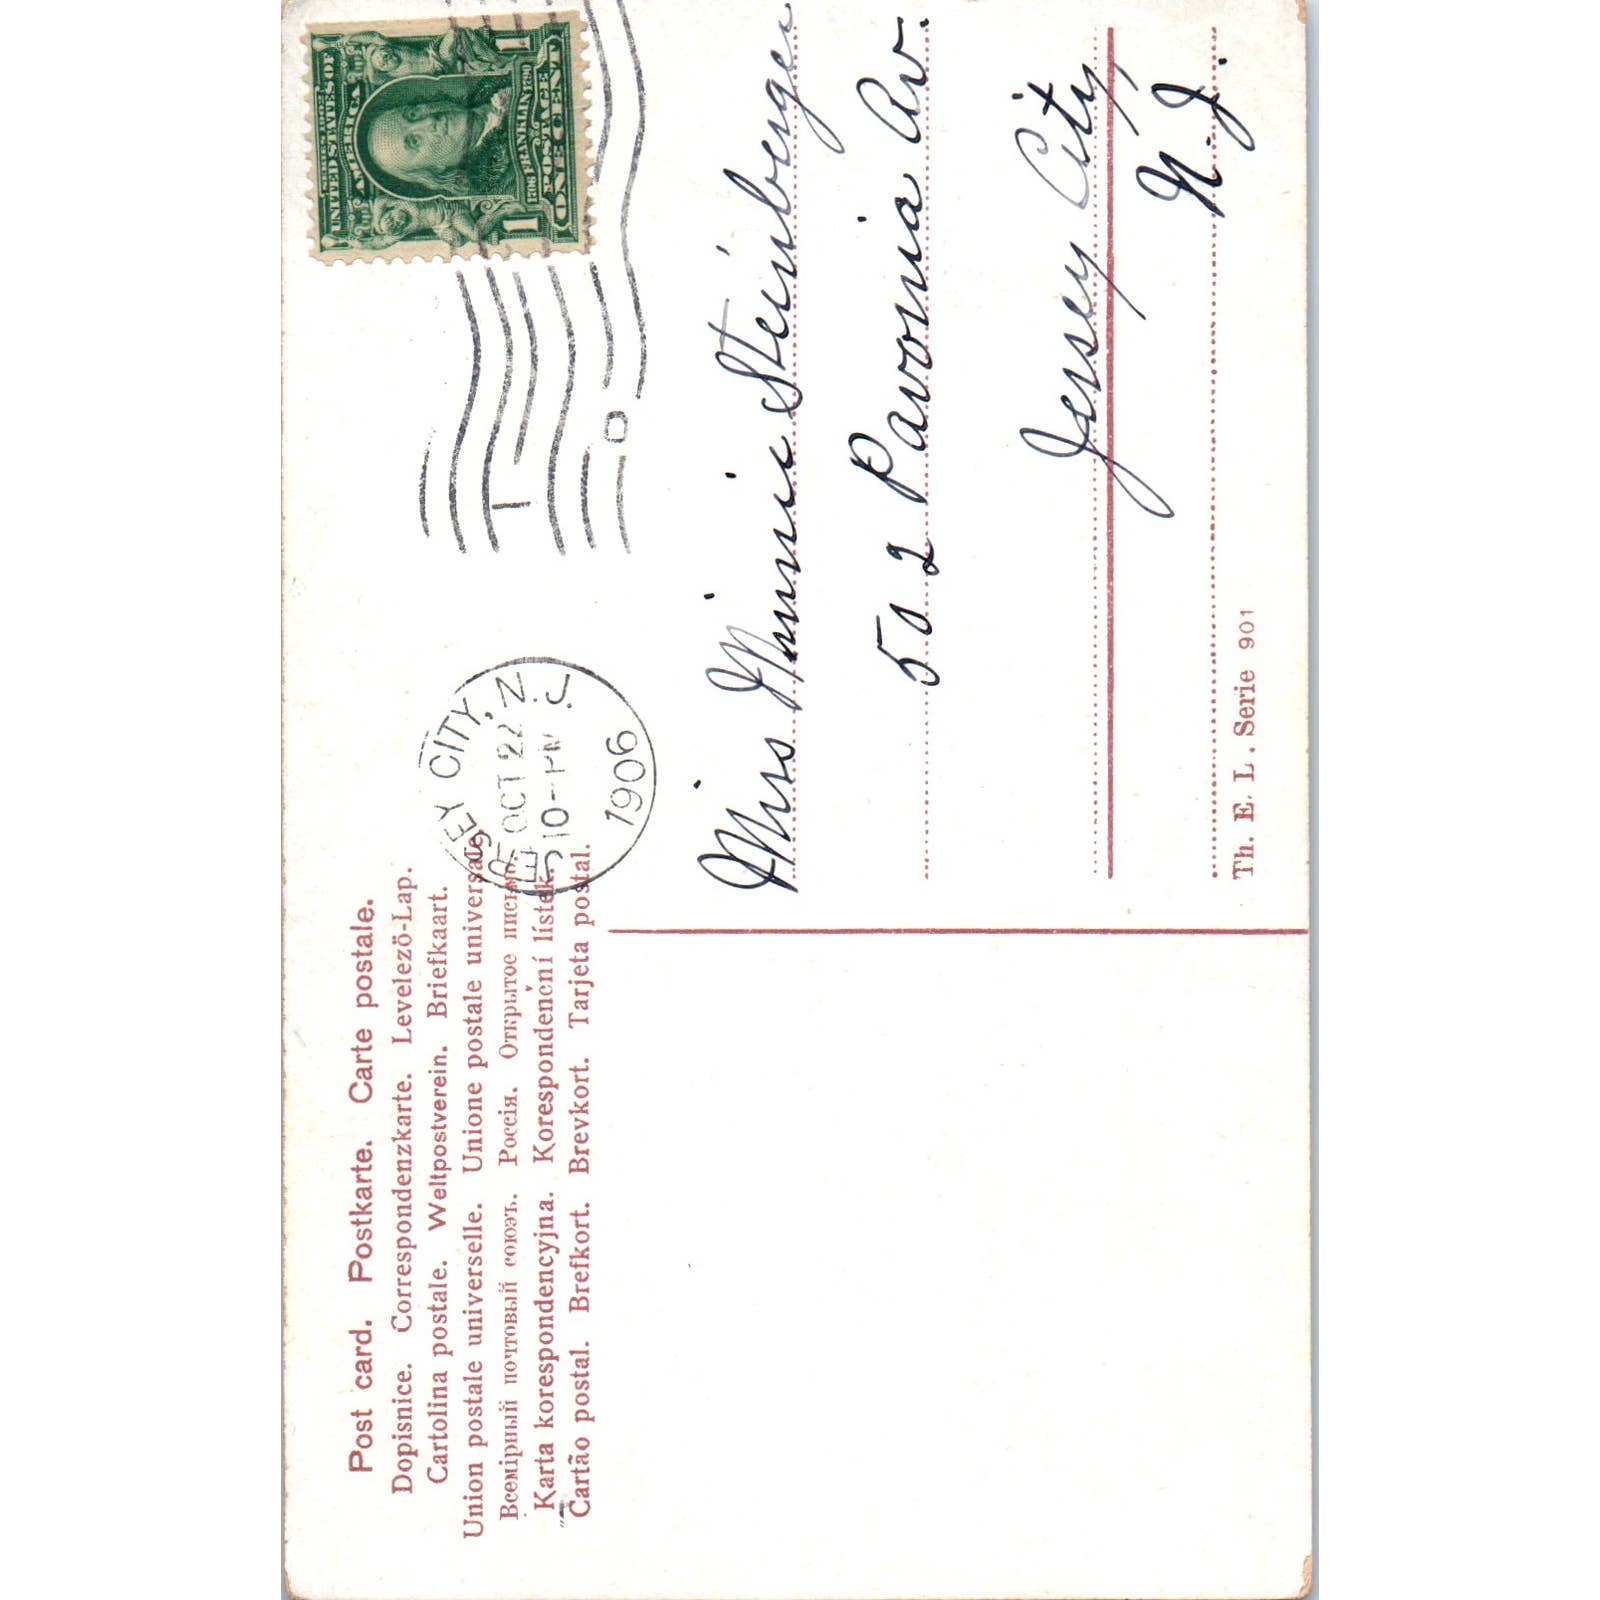 Post card. Postkarte. Carte postale.
Dopisnice. Correspondenzkarte. Levelező-Lap.
Cartolina postale. Weltpostverein. Briefkaart.
Union postale universelle. Unione postale universale.
Всемірный почтовый союзъ. Россія. Открытое письмо.
Karta korespondencyjna. Korespondenční lístek.
Cartão postal. Brefkort. Brevkort. Tarjeta postal.
JERSEY CITY, N.J.
OCT 22
10-PM
1906
UNITED STATES OF
AMERICA
1706 FRANKLIN 1790
1 POSTAGE 1
ONE CENT
Miss Minnie Steinberger
502 Pavonia Av.
Jersey City
N.J.
Th. E. L. Serie 901